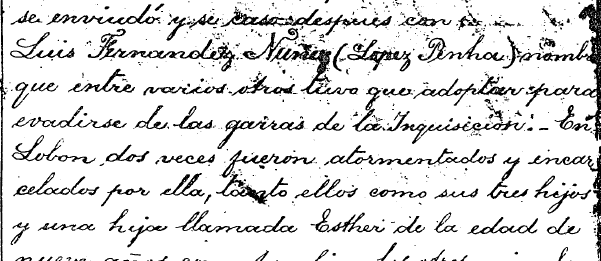 se enviudó y se caso despues con
Luis Fernandez Nuñez (Lopez Penha) nombre
que entre varios otros tuvo que adoptar para
evadirse de las garras de la Inquisición. - En
Lobon dos veces fueron atormentados y encar
celados por ella, tanto ellos como sus tres hijos
y una hija llamada Esther de la edad de
nueve años